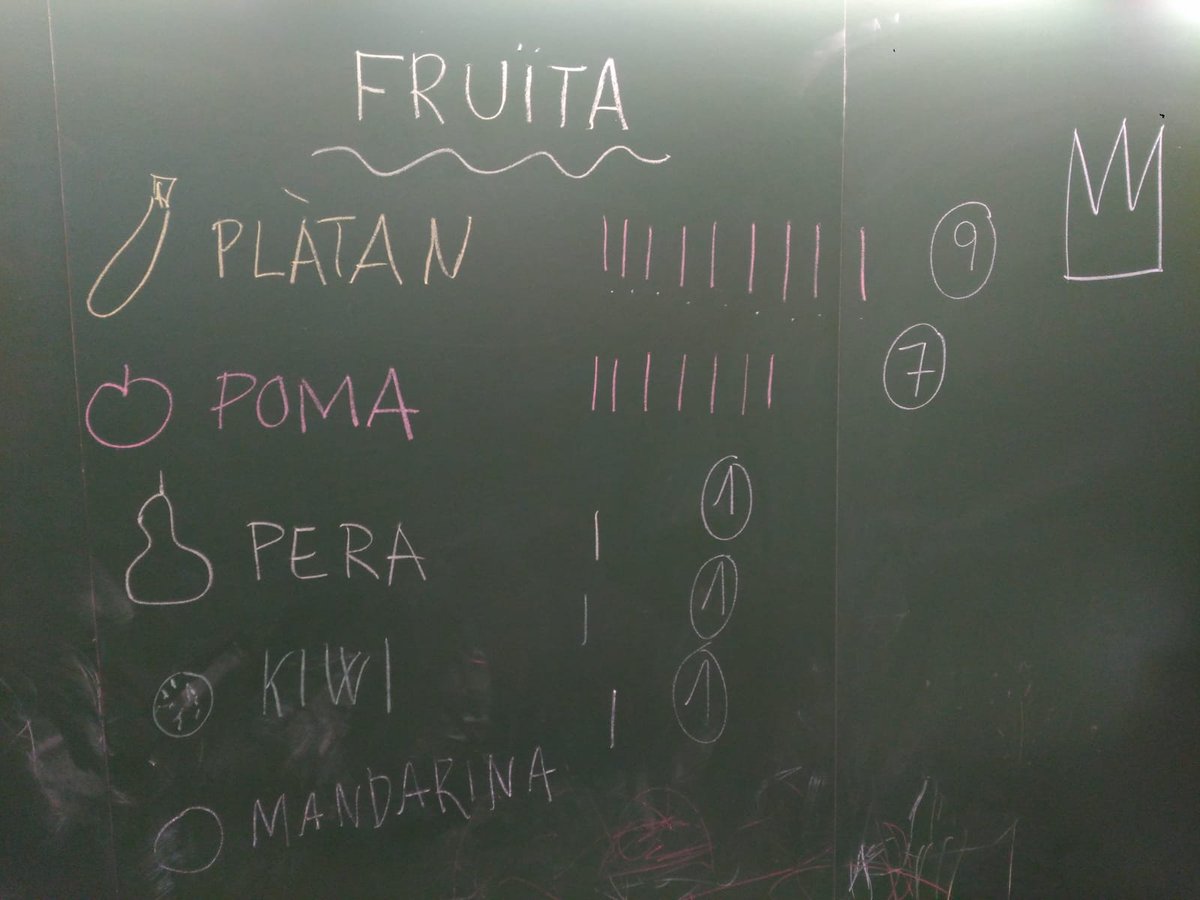 FRUÏTA
PLÀTAN ||||||||| 9
POMA ||||||| 7
PERA | 1
KIWI | 1
MANDARINA | 1